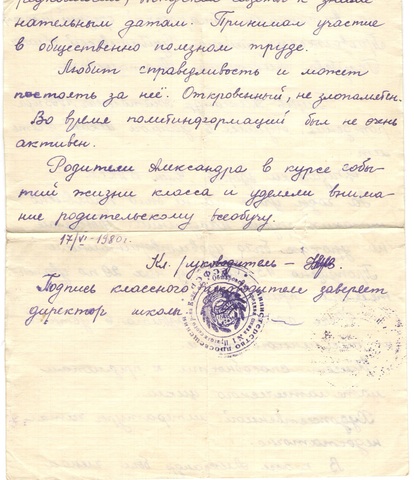 газет к знаме
нательным датам. Принимал участие
в общественно полезном труде.
Любит справедливость и может
постоять за неё. Откровенный, не злопамятен.
Во время политинформаций был не очень
активен.
Родители Александра в курсе собы
тий жизни класса и уделяли внима
ние родительскому всеобучу.
17/VI-1980г.
Кл. руководитель –
Подпись классного руководителя заверяет
директор школы
МИНИСТЕРСТВО ПРОСВЕЩЕНИЯ РСФСР